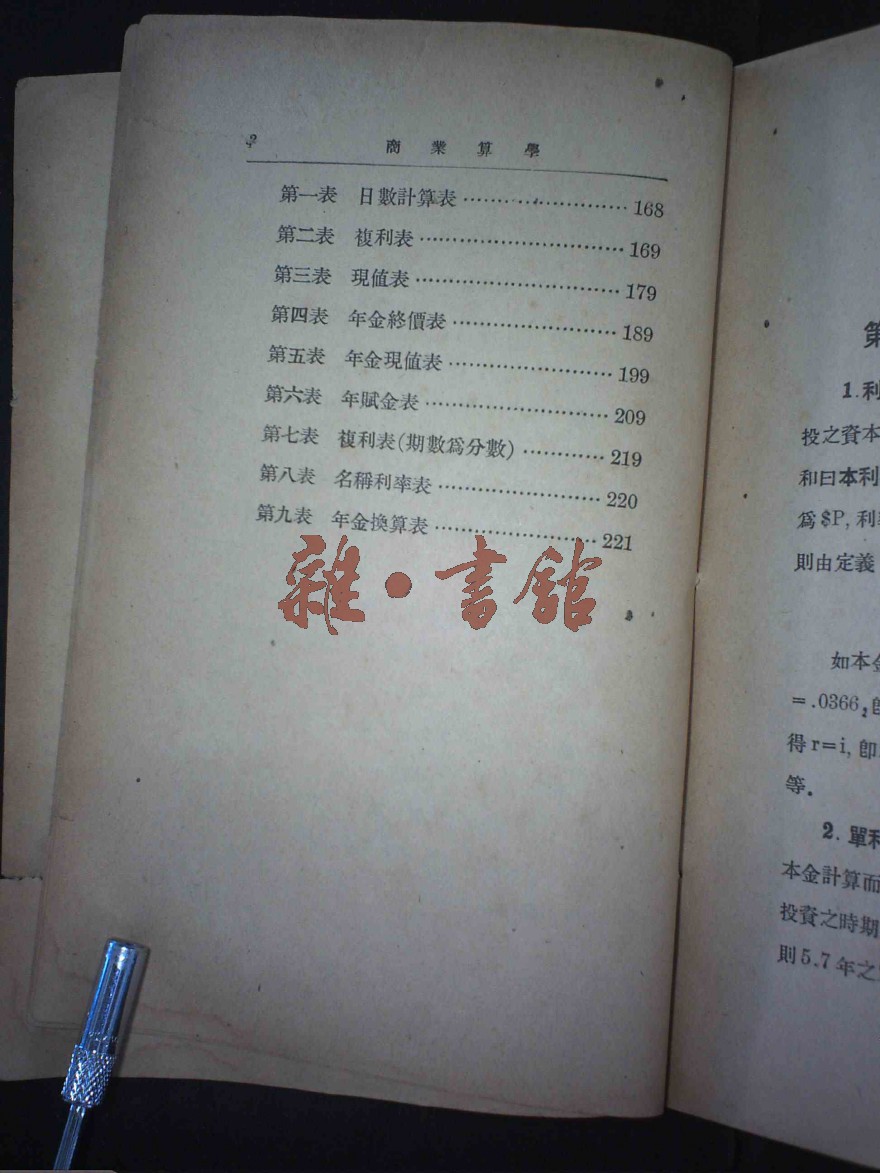 2
商業算學
第一表 日數計算表 168
第二表 複利表 169
第三表 現值表 179
第四表 年金終價表 189
第五表 年金現值表 199
第六表 年賦金表 209
第七表 複利表(期數爲分數) 219
第八表 名稱利率表 220
第九表 年金換算表 221
雜·書館
第
1.利
投之資本
和曰本利
爲$P,利
則由定義
如本金
=.0366,
得r=i,卽
等.
2.單利
本金計算而
投資之時期
則5.7年之